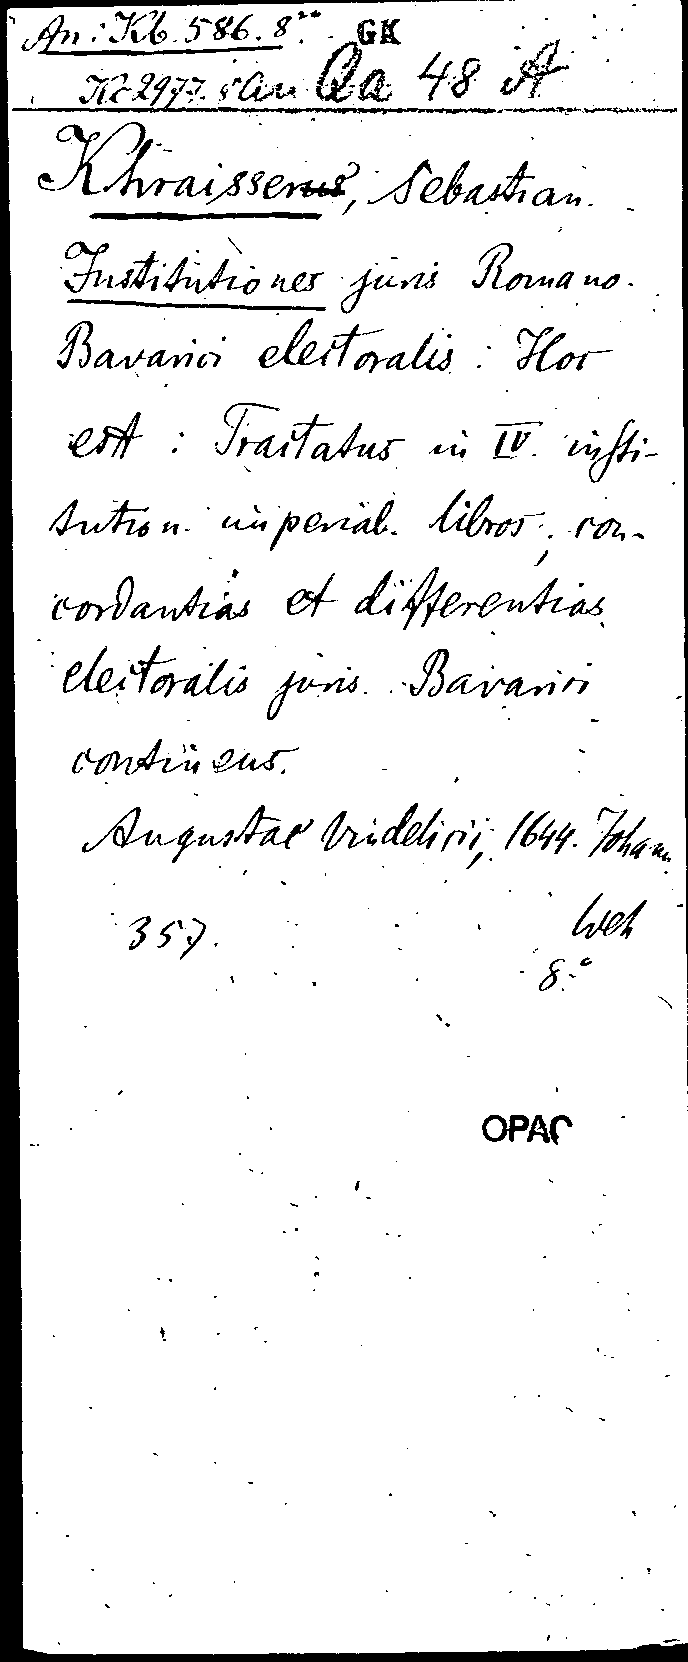 An: Kb. 586. 8°. GK
Kc 2977. 8 an Qa 48 A
Khraisserus, Sebastian.
Institutiones juris Romano-
Bavarici electoralis: Hoc
est: Tractatus in IV. insti-
tution. imperial. libros, con-
cordantias et differentias
electoralis juris Bavarici
continens.
Augustae Vindelicii, 1644. Johann
357. Weh
8.°
OPAC